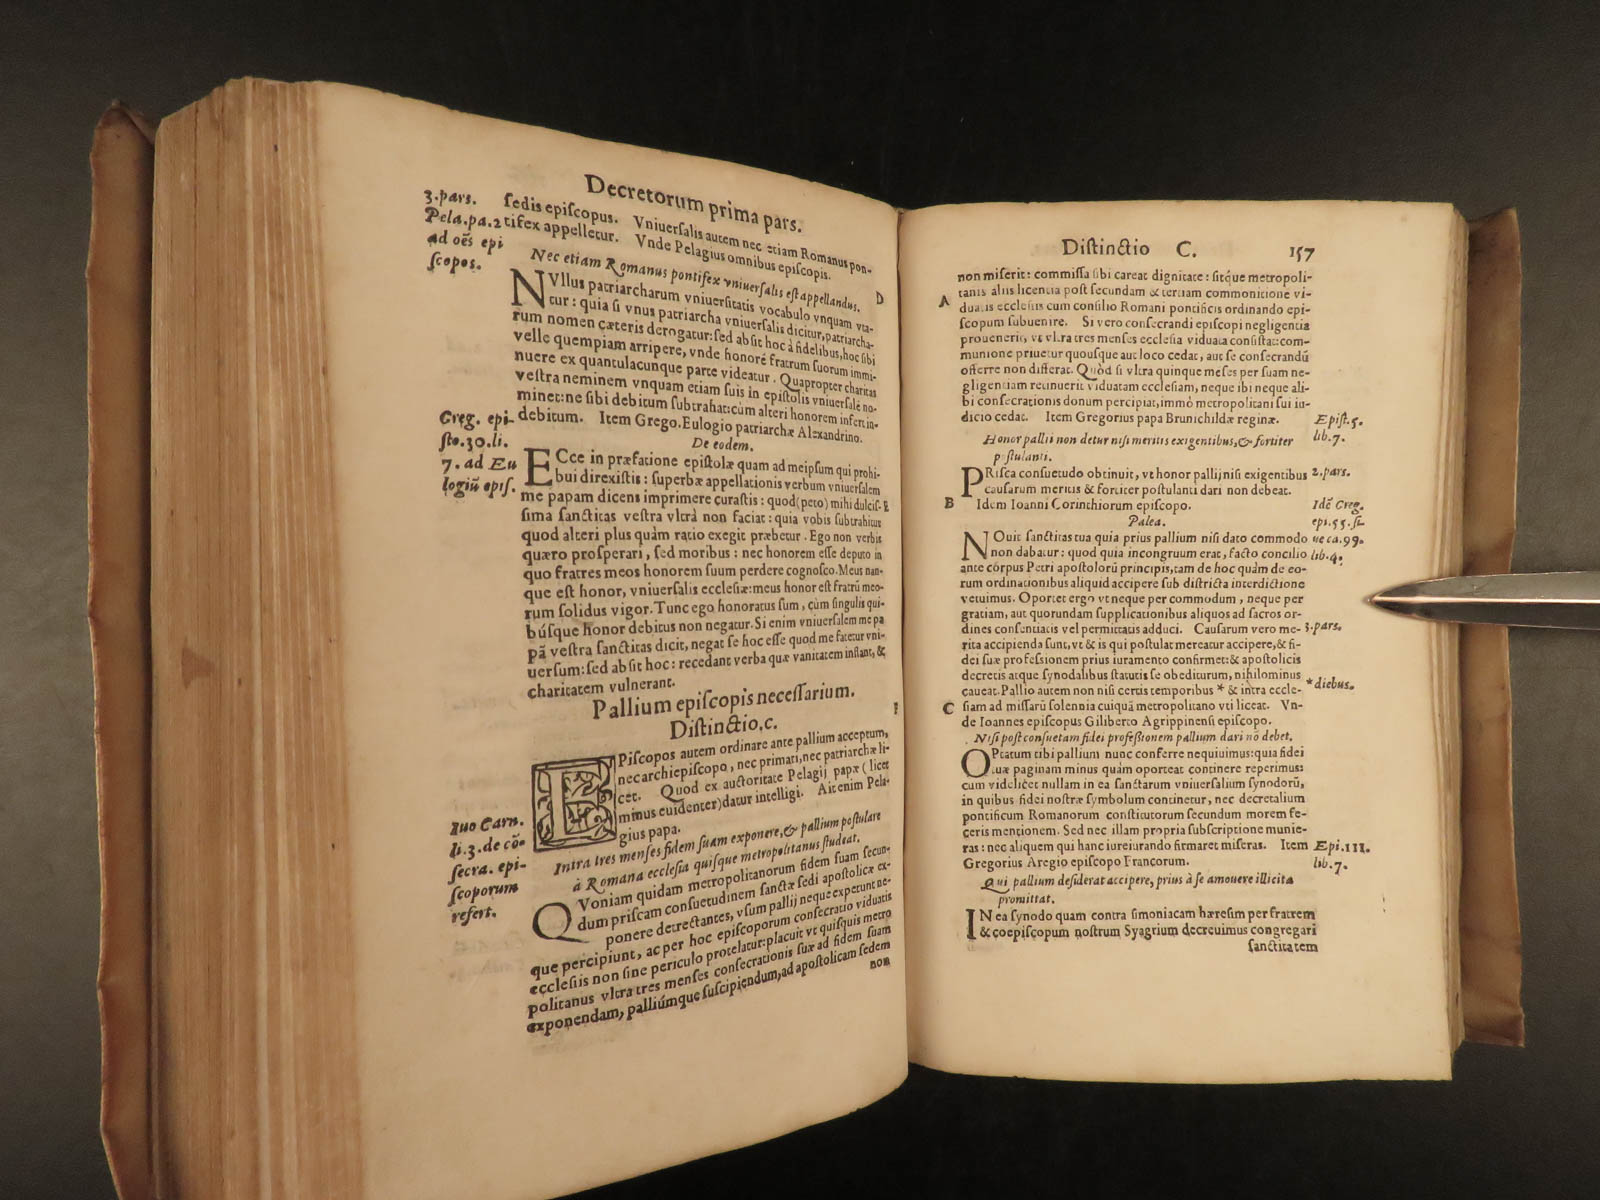 Decretorum prima pars.
3.pars.
Pela.pa.2
ad oēs epi
ſcopos.
ſedis epiſcopus. Vniuerſalis autem nec etiam Romanus pon-
tifex appelletur. Vnde Pelagius omnibus epiſcopis.
Nec etiam Romanus pontifex vniuerſalis eſt appellandus.
D
NVllus patriarcharum vniuerſitatis vocabulo vnquam vta-
tur: quia ſi vnus patriarcha vniuerſalis dicitur, patriarcha-
rum nomen cæteris derogatur: ſed abſit hoc à fidelibus, hoc ſibi
velle quempiam arripere, vnde honorē fratrum ſuorum immi-
nuere ex quantulacunque parte videatur. Quapropter charitas
veſtra neminem vnquam etiam ſuis in epiſtolis vniuerſalē no-
minet: ne ſibi debitum ſubtrahat: cùm alteri honorem infert in-
debitum. Item Grego. Eulogio patriarchæ Alexandrino.
Greg. epi-
ſto.30.li.
7. ad Eu
logiū epiſ.
De eodem.
ECce in præfatione epiſtolæ quam ad meipſum qui prohi-
bui direxiſtis: ſuperbæ appellationis verbum vniuerſalem
me papam dicens imprimere curaſtis: quod (peto) mihi dulciſ-
E
ſima ſanctitas veſtra vltrà non faciat: quia vobis ſubtrahitur
quod alteri plus quàm ratio exegit præbetur. Ego non verbis
quæro proſperari, ſed moribus: nec honorem eſſe deputo in
quo fratres meos honorem ſuum perdere cognoſco. Meus nan-
que eſt honor, vniuerſalis eccleſiæ: meus honor eſt fratrū meo-
rum ſolidus vigor. Tunc ego honoratus ſum, cùm ſingulis qui-
búſque honor debitus non negatur. Si enim vniuerſalem me pa
pā veſtra ſanctitas dicit, negat ſe hoc eſſe quod me fatetur vni-
uerſum: ſed abſit hoc: recedant verba quæ vanitatem inflant, &
charitatem vulnerant.
Pallium epiſcopis neceſſarium.
Diſtinctio.c.
F
EPiſcopos autem ordinare ante pallium acceptum,
nec archiepiſcopo, nec primati, nec patriarchæ li-
cet. Quod ex auctoritate Pelagij papæ (licet
minus euidenter) datur intelligi. Ait enim Pela-
gius papa.
Iuo Carn.
li.3.de cō-
ſecra. epi-
ſcoporum
refert.
Intra tres menſes fidem ſuam exponere, & pallium poſtulare
à Romana eccleſia quiſque metropolitanus ſtudeat.
QVoniam quidam metropolitanorum fidem ſuam ſecun-
dum priſcam conſuetudinem ſanctæ ſedi apoſtolicæ ex-
ponere detrectantes, vſum pallij neque expetunt ne-
que percipiunt, ac per hoc epiſcoporum conſecratio viduatis
eccleſiis non ſine periculo protelatur: placuit vt quiſquis metro
politanus vltra tres menſes conſecrationis ſuæ ad fidem ſuam
exponendam, palliúmque ſuſcipiendum, ad apoſtolicam ſedem
non
Diſtinctio C. 157
non miſerit: commiſſa ſibi careat dignitate: ſitq́ue metropoli-
A
tanis aliis licentia poſt ſecundam & tertiam commonitione vi-
duatis eccleſiis cum conſilio Romani pontificis ordinando epi-
ſcopum ſubuenire. Si vero conſecrandi epiſcopi negligentia
prouenerit, vt vltra tres menſes eccleſia viduata conſiſtat: com-
munione priuetur quouſque aut loco cedat, aut ſe conſecrandū
offerre non differat. Quòd ſi vltra quinque mēſes per ſuam ne-
gligentiam retinuerit viduatam eccleſiam, neque ibi neque ali-
bi conſecrationis donum percipiat, immò metropolitani ſui iu-
dicio cedat. Item Gregorius papa Brunichildæ reginæ.
Epiſt.5.
lib.7.
Honor pallii non detur niſi meritis exigentibus, & fortiter
poſtulanti.
PRiſca conſuetudo obtinuit, vt honor pallij niſi exigentibus
2.pars.
cauſarum meritis & fortiter poſtulanti dari non debeat.
B
Idem Ioanni Corinthiorum epiſcopo.
Idē Greg.
epi.55.ſi-
ue ca.99.
lib.4.
Palea.
NOuit ſanctitas tua quia prius pallium niſi dato commodo
non dabatur: quod quia incongruum erat, facto concilio
ante corpus Petri apoſtolorū principis, tam de hoc quàm de eo-
rum ordinationibus aliquid accipere ſub diſtricta interdictione
vetuimus. Oportet ergo vt neque per commodum, neque per
gratiam, aut quorundam ſupplicationibus aliquos ad ſacros or-
dines conſentiatis vel permittatis adduci. Cauſarum vero me-
3.pars.
rita accipienda ſunt, vt & is qui poſtulat mereatur accipere, & fi-
dei ſuæ profeſſionem prius iuramento confirmet: & apoſtolicis
decretis atque ſynodalibus ſtatutis ſe obediturum, nihilominus
caueat. Pallio autem non niſi certis temporibus * & intra eccle-
* diebus.
C
ſiam ad miſſarū ſolennia cuiquā metropolitano vti liceat. Vn-
de Ioannes epiſcopus Giliberto Agrippinenſi epiſcopo.
Niſi poſt conſuetam fidei profeſſionem pallium dari nō debet.
OPtatum tibi pallium nunc conferre nequiuimus: quia fidei
tuæ paginam minus quàm oporteat continere reperimus:
cum videlicet nullam in ea ſanctarum vniuerſalium ſynodorū,
in quibus fidei noſtræ ſymbolum continetur, nec decretalium
pontificum Romanorum conſtitutorum ſecundum morem fe-
ceris mentionem. Sed nec illam propria ſubſcriptione munie-
ras: nec aliquem qui hanc iureiurando firmaret miſeras. Item
Epi.111.
lib.7.
Gregorius Aregio epiſcopo Francorum.
Qui pallium deſiderat accipere, prius à ſe amouere illicita
promittat.
IN ea ſynodo quam contra ſimoniacam hæreſim per fratrem
& coepiſcopum noſtrum Syagrium decreuimus congregari
ſanctitatem